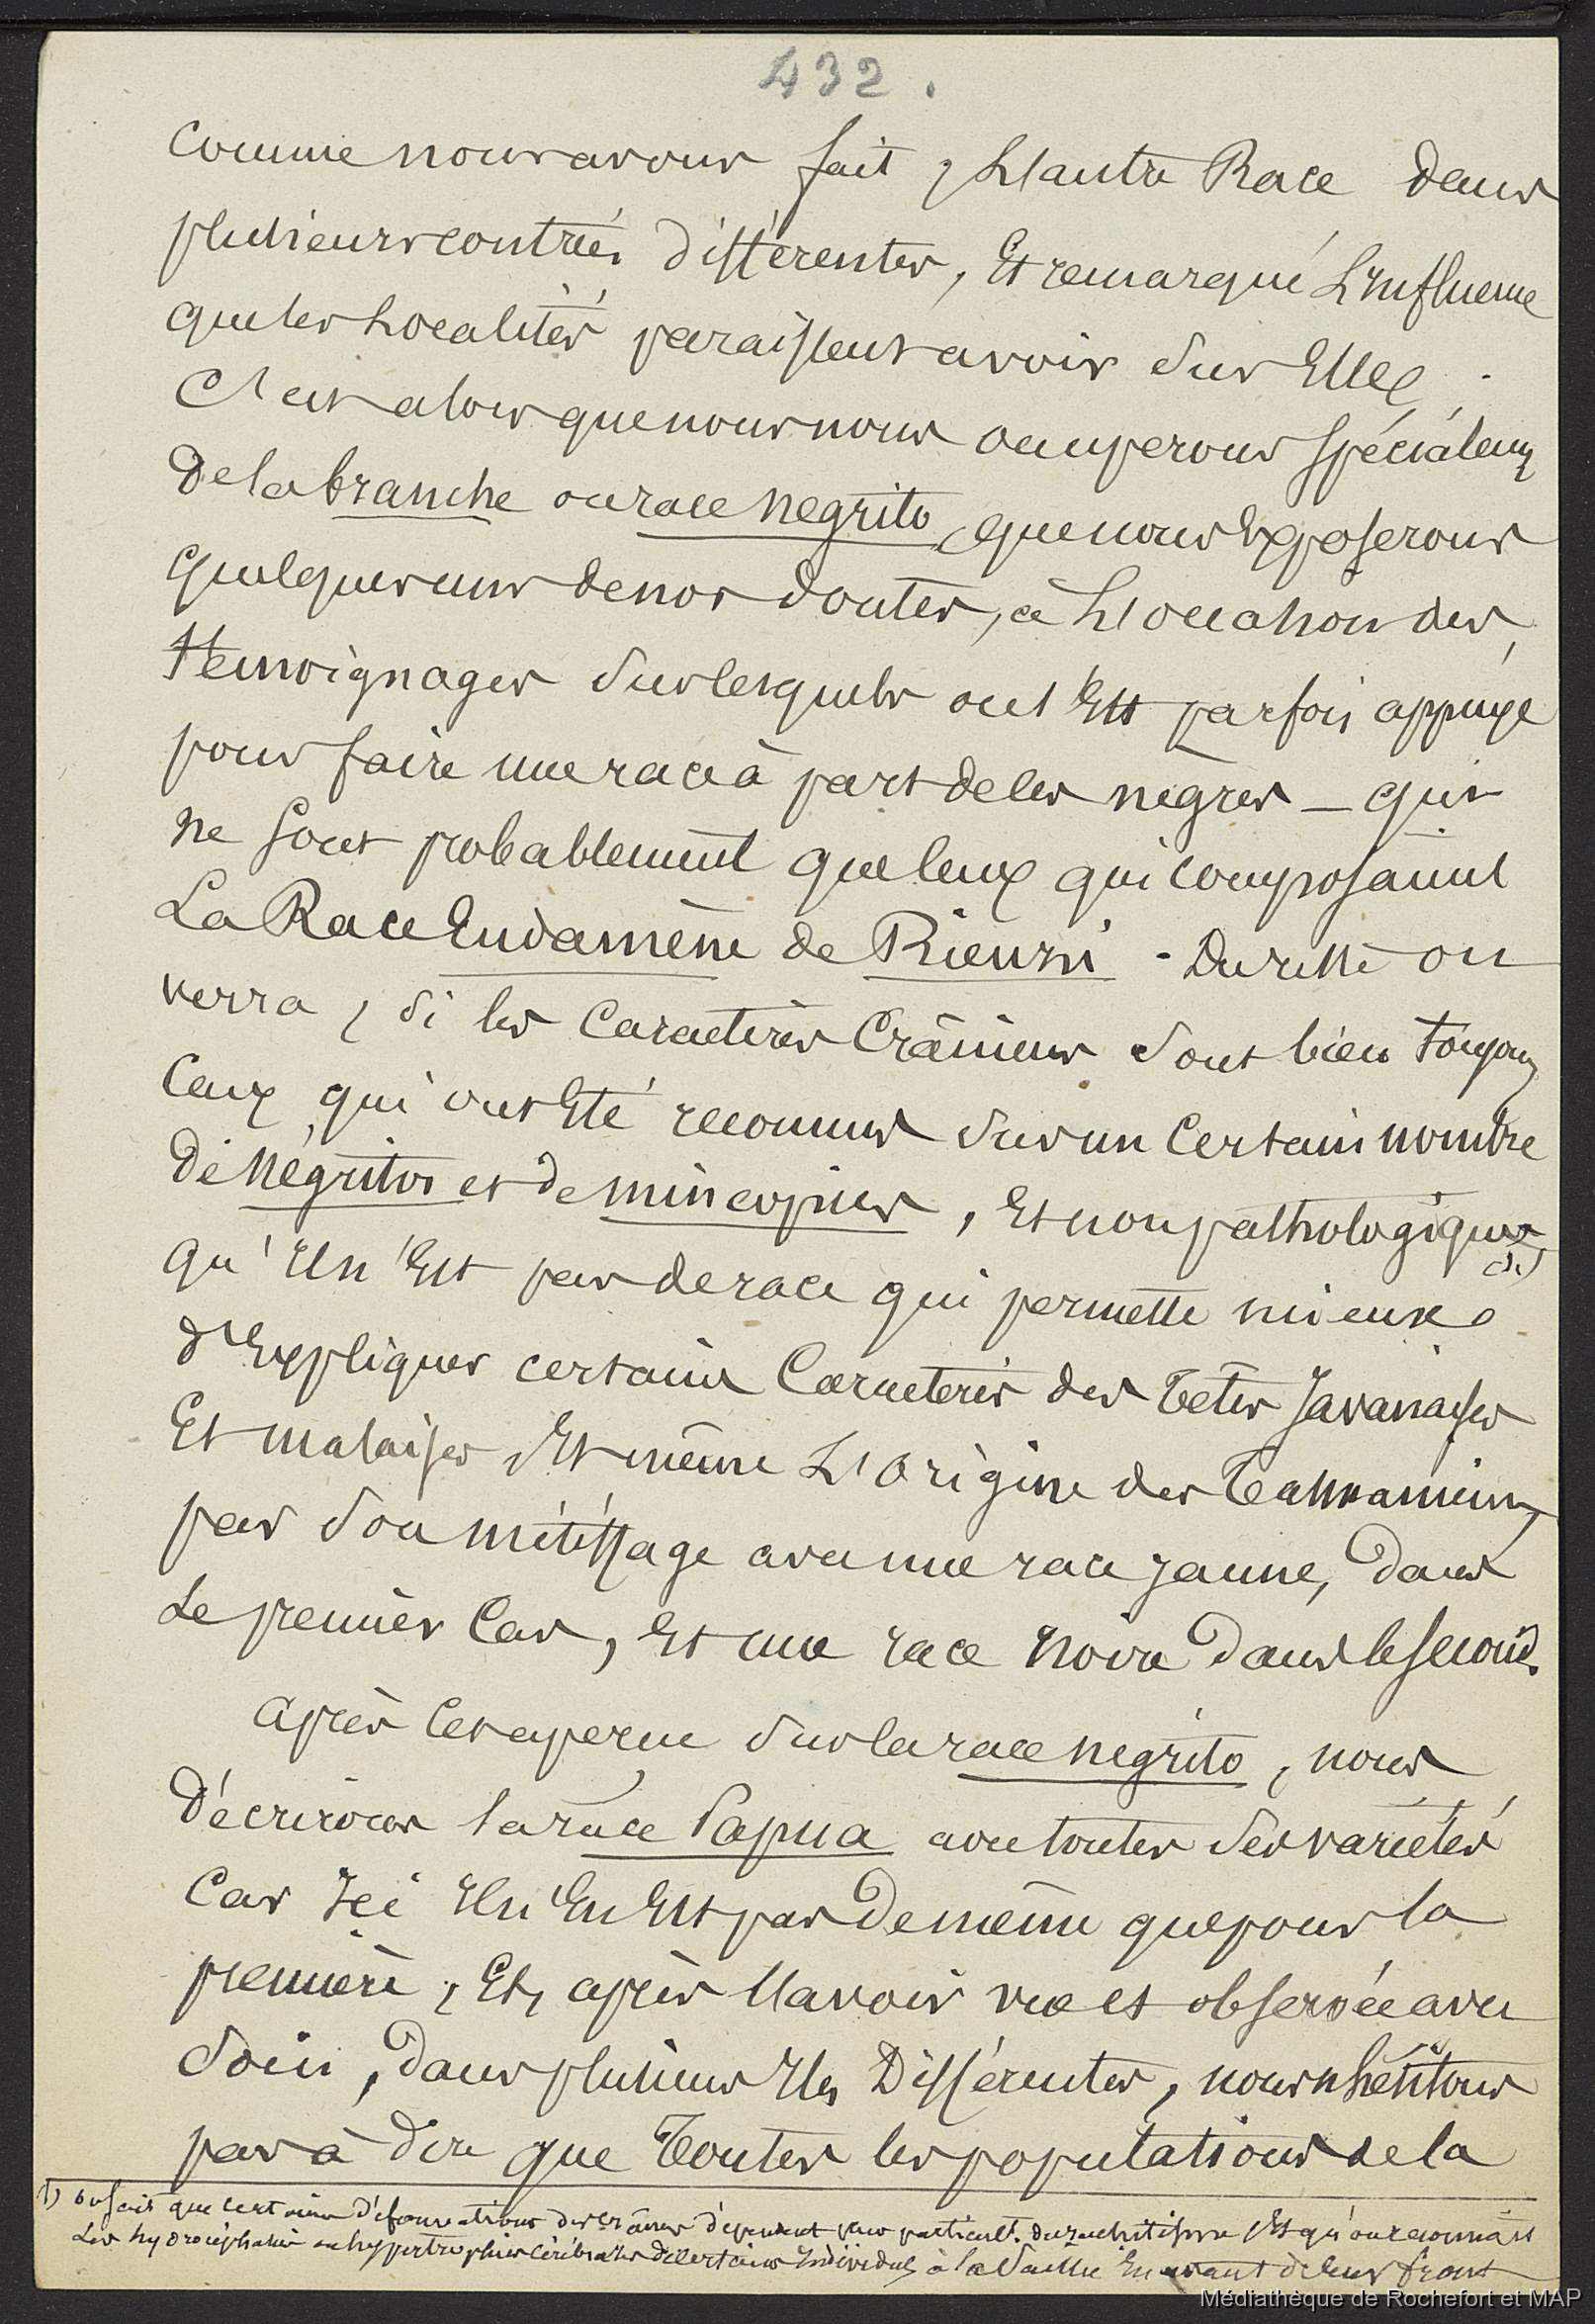 432.
comme nous avons fait, L'autre Race dans
plusieurs contrées différentes, Et remarqué L'Influence
que les Localités paraissent avoir sur Elle.
C'est alors que nous nous occuperons spécialem
de la branche ou race négrito, que nous Exposerons
quelques uns de nos doutes, à L'occasion des
témoignages sur lesquels on s'Est parfois appuyé
pour faire une race à part de ces nègres — qui
ne sont probablement que ceux qui composaient
La Race Endamène de Rienzi. Du reste on
verra, si les Caractères Crâniens sont bien toujours
Ceux qui ont Eté reconnus sur un Certain nombre
de Négritos et de mincopies, Et non pathologiques (1)
qu'Il n'Est pas de race qui permette mieux
d'Expliquer certains Caractères des Têtes Javanaises
Et malaises Et même L'Origine des Tasmaniens
par son métissage avec une race jaune, Dans
Le premier Cas, Et une race Noire Dans le second.
Après cet aperçu sur la race négrito, nous
Décrirons la race Papua avec toutes ses variétés
Car Ici Il n'En Est pas De même que pour la
première, Et, après l'avoir vue et observée avec
soin, Dans plusieurs Iles Différentes, nous n'hésitons
pas à dire que Toutes les populations de la
1) on sait que certaines Déformations des crânes dépendent plus particult. du rachitisme Et qu'on reconnait
Les hydrocéphalies ou hypertrophies cérébrales De certains Individus à la saillie En avant de leur front
Médiathèque de Rochefort et MAP